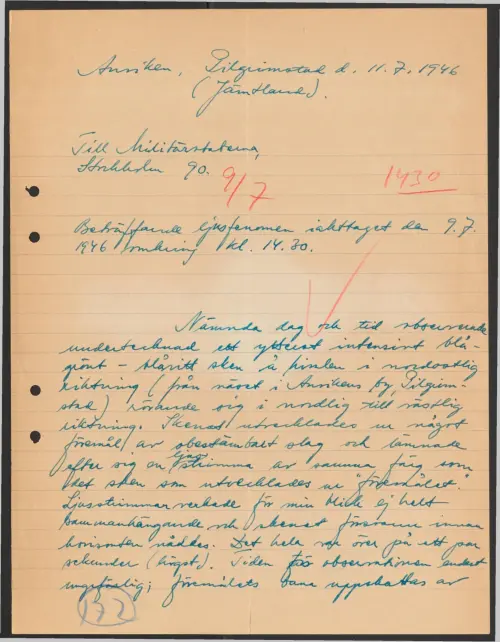 Ansiken, Pilgrimstad d. 11.7.1946
(Jämtland).
Till Militärstaberna,
Stockholm 90.
9/7
1430
Beträffande ljusfenomen iakttaget den 9.7.
1946 omkring kl. 14.30.
Nämnda dag och tid observerade
undertecknad ett ytterst intensivt blå-
grönt - blåvitt sken å himlen i nordostlig
riktning (från näset i Ansikens by, Pilgrim-
stad) rörande sig i nordlig till västlig
riktning. Skenet utvecklades ur något
föremål av obestämbart slag och lämnade
efter sig en ljusstrimma av samma färg som
det sken som utvecklades ur "föremålet".
Ljusstrimman verkade för min blick ej helt
sammanhängande och skenet försvann innan
horisonten nåddes. Det hela var över på ett par
sekunder (högst). Tiden för observationen endast
ungefärlig; föremålets bana uppskattas av
172